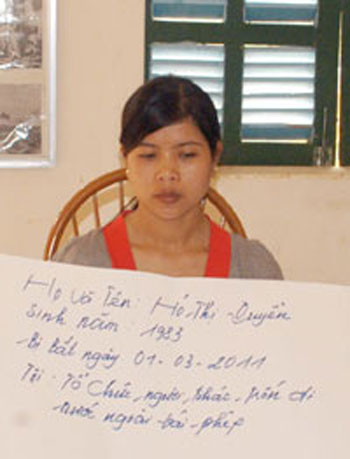 Họ Và Tên: Hồ Thị Quyên
Sinh năm: 1983
Bị bắt ngày 01-03-2011
Tội: Tổ Chức người khác trốn đi
nước ngoài trái phép